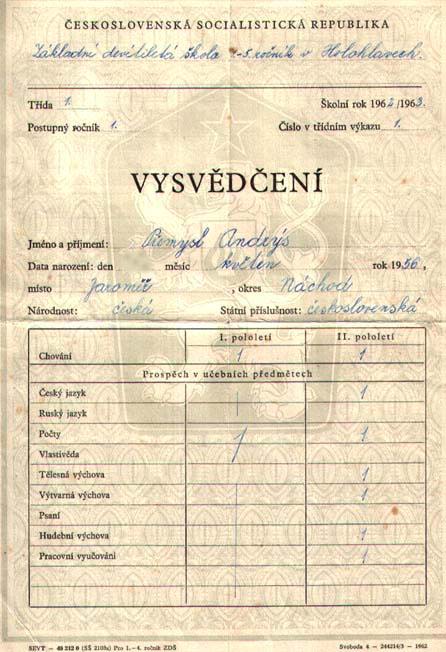 ČESKOSLOVENSKÁ SOCIALISTICKÁ REPUBLIKA
Základní devítiletá škola 1-5. ročník v Holohlavech.
Třída 1. Školní rok 1962/1963.
Postupný ročník 1. Číslo v třídním výkazu 1.
VYSVĚDČENÍ
Jméno a příjmení: Přemysl Andrýs
Datum narození: den měsíc květen rok 1956,
místo Jaroměř, okres Náchod
Národnost: česká Státní příslušnost: československá
I. pololetí II. pololetí
Chování 1 1
Prospěch v učebních předmětech
Český jazyk 1
Ruský jazyk
Počty 1 1
Vlastivěda
Tělesná výchova 1
Výtvarná výchova 1
Psaní
Hudební výchova 1
Pracovní vyučování 1
SEVT — 49 212 0 (SŠ 2103a) Pro 1.—4. ročník ZDŠ Svoboda 4 — 244214/3 — 1962